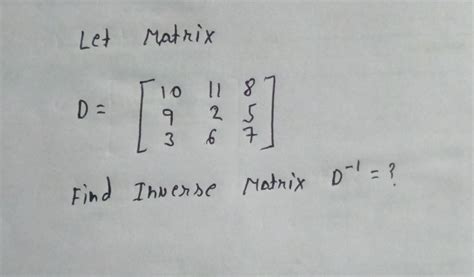 Let Matrix
10 11 8
D = 9 2 5
3 6 7
Find Inverse Matrix D⁻¹ = ?